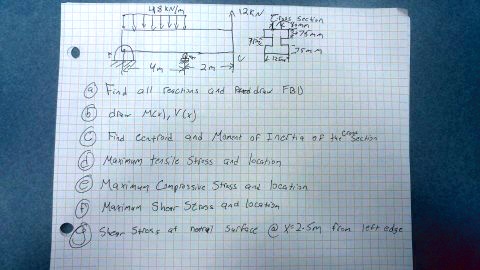 48 kN/m
12KN
Cross section
75mm
75mm
4m
2m
ⓐ Find all reactions and draw FBD
ⓑ draw M(x), V(x)
ⓒ Find centroid and Moment of Inertia of the cross section
ⓓ Maximum tensile Stress and location
ⓔ Maximum Compressive Stress and location
ⓕ Maximum Shear Stress and location
ⓖ Shear Stress at normal surface @ x=2.5m from left edge